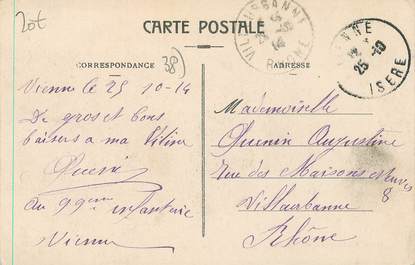 20t
CARTE POSTALE
CORRESPONDANCE
ADRESSE
38)
VILLEURBANNE
RHONE
VIENNE
25 -10
ISERE
Vienne le 25 10-14
De gros et bons
baisers a ma Titine
au 99eme infanterie
Vienne
Mademoiselle
Quenin Augustine
rue des Maisons neuves
8
Villeurbanne
Rhône